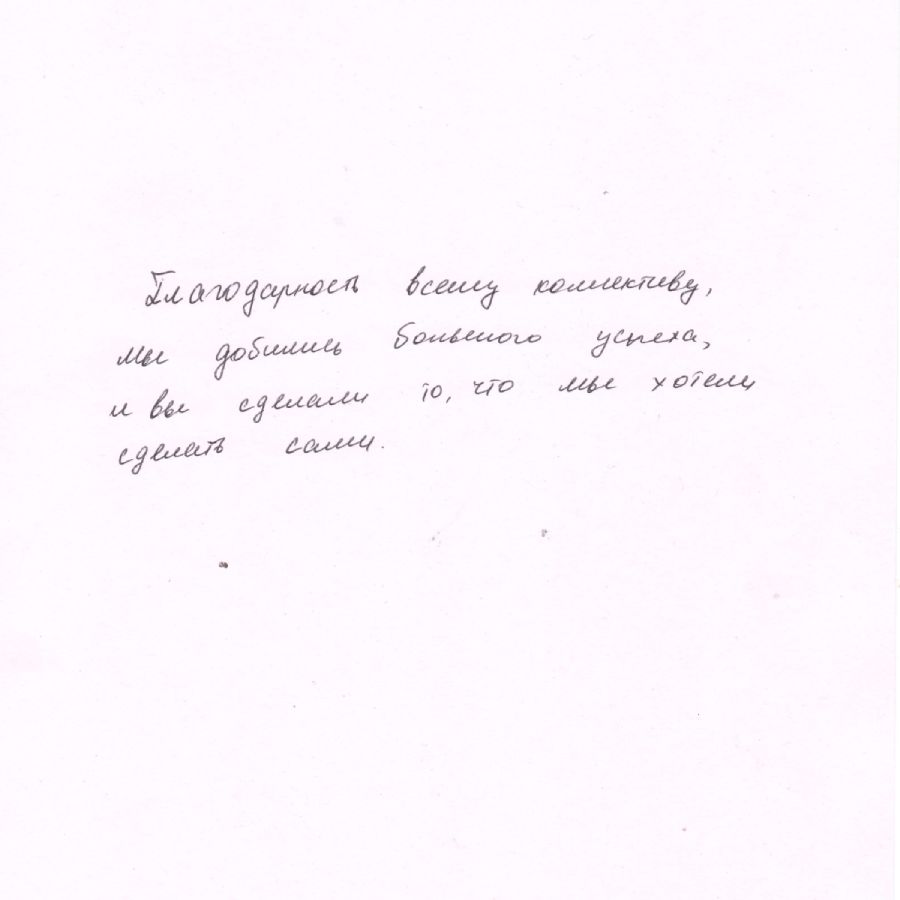 Благодарность всему коллективу,
мы добились большого успеха,
и вы сделали то, что мы хотели
сделать сами.